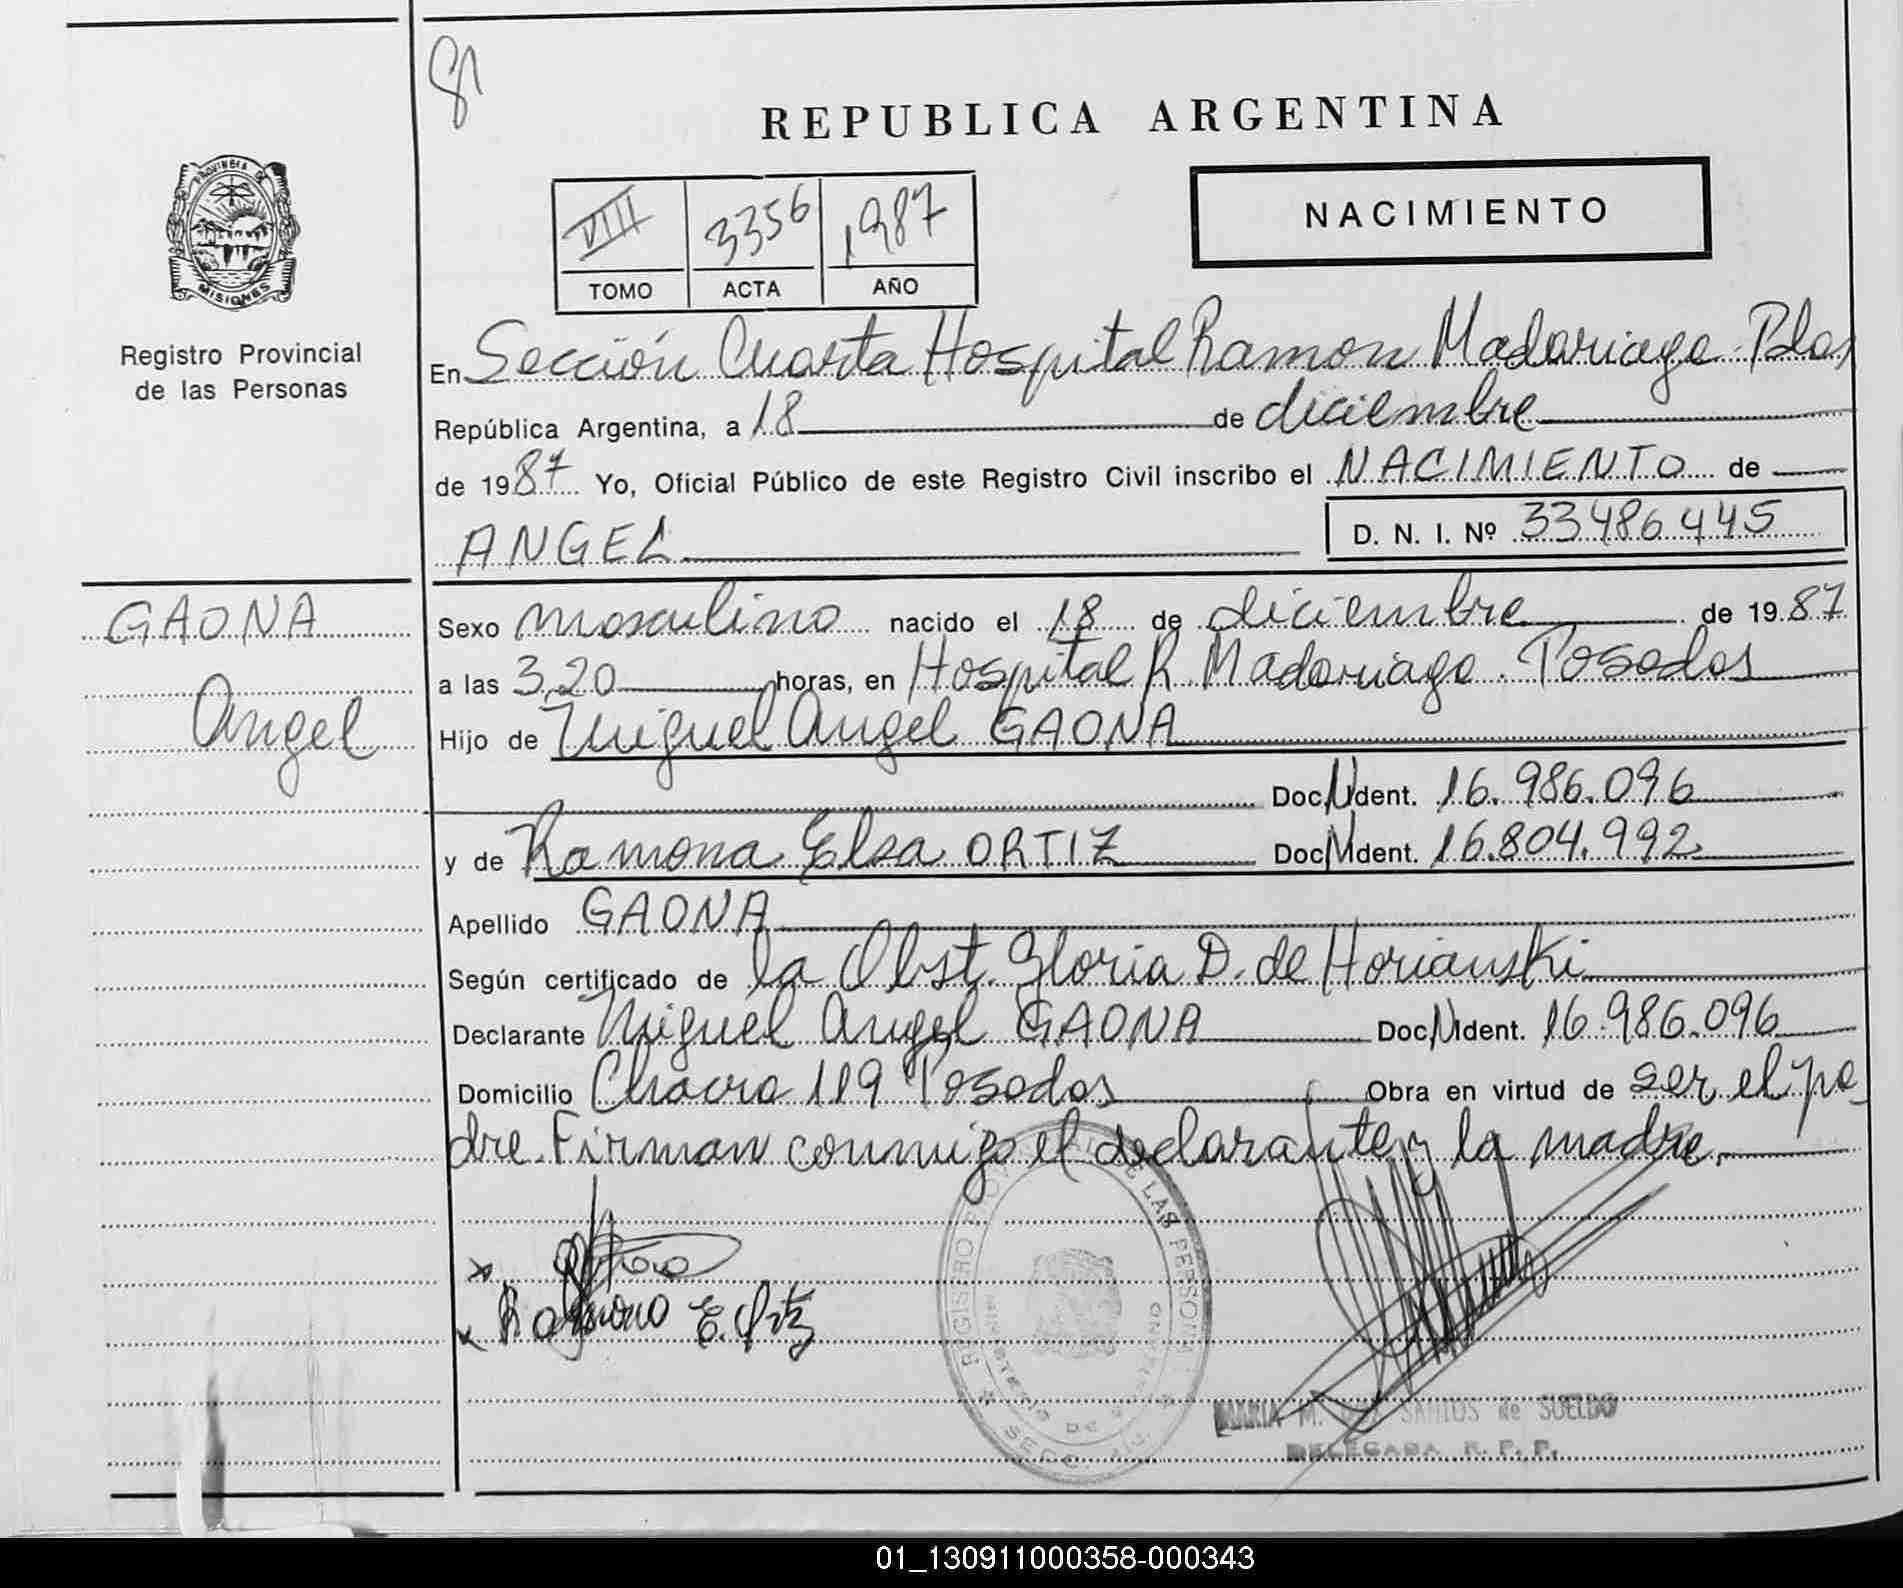 81
REPUBLICA ARGENTINA
PROVINCIA DE
MISIONES
Registro Provincial
de las Personas
VIII 3356 1987
TOMO ACTA AÑO
NACIMIENTO
En Sección Cuarta Hospital Ramon Madariaga Pdas
República Argentina, a 18 de diciembre
de 1987 Yo, Oficial Público de este Registro Civil inscribo el NACIMIENTO de
ANGEL D. N. I. Nº 33486445
GAONA
Angel
Sexo masculino nacido el 18 de diciembre de 1987
a las 3,20 horas, en Hospital R. Madariaga. Posadas
Hijo de Miguel Angel GAONA
Doc. Ident. 16.986.096
y de Ramona Elsa ORTIZ Doc. Ident. 16.804.992
Apellido GAONA
Según certificado de la Obst. Gloria D. de Horianski
Declarante Miguel Angel GAONA Doc. Ident. 16.986.096
Domicilio Chacra 119 Posadas Obra en virtud de ser el pa
dre. Firman conmigo el declarante y la madre.
Ramona E. Ortiz
REGISTRO PROVINCIAL DE LAS PERSONAS
MARIA M. SANTOS de SUELDO
DELEGADA R. P. P.
01_130911000358-000343